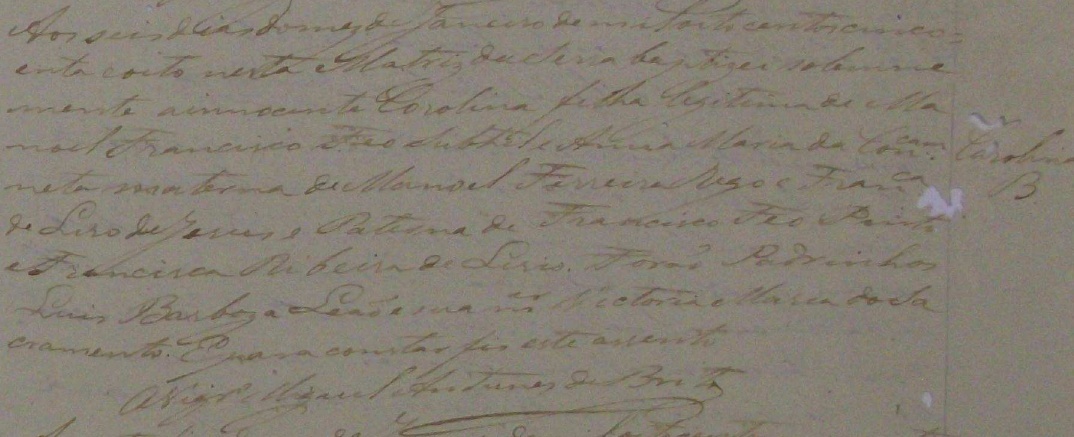 Aos seis dias do mes de Janeiro de mil oito centos cinco=
enta e oito nesta Matriz da Serra baptizei solemne
mente a innocente Carolina filha legitima de Ma
noel Francisco Feo e Anna Maria da Con.cam
neta materna de Manoel Ferreira Rego e Fran.ca
de Liro de Jesus e Paterna de Francisco Feo Pinto
e Francisca Ribeira de Lirio. Forão Padrinhos
Luis Barboza Leão e sua Victoria Maria do Sa
cramento. E para constar fis este assento
O Vigr.o Miguel Antunes de Brito
Carolina
B